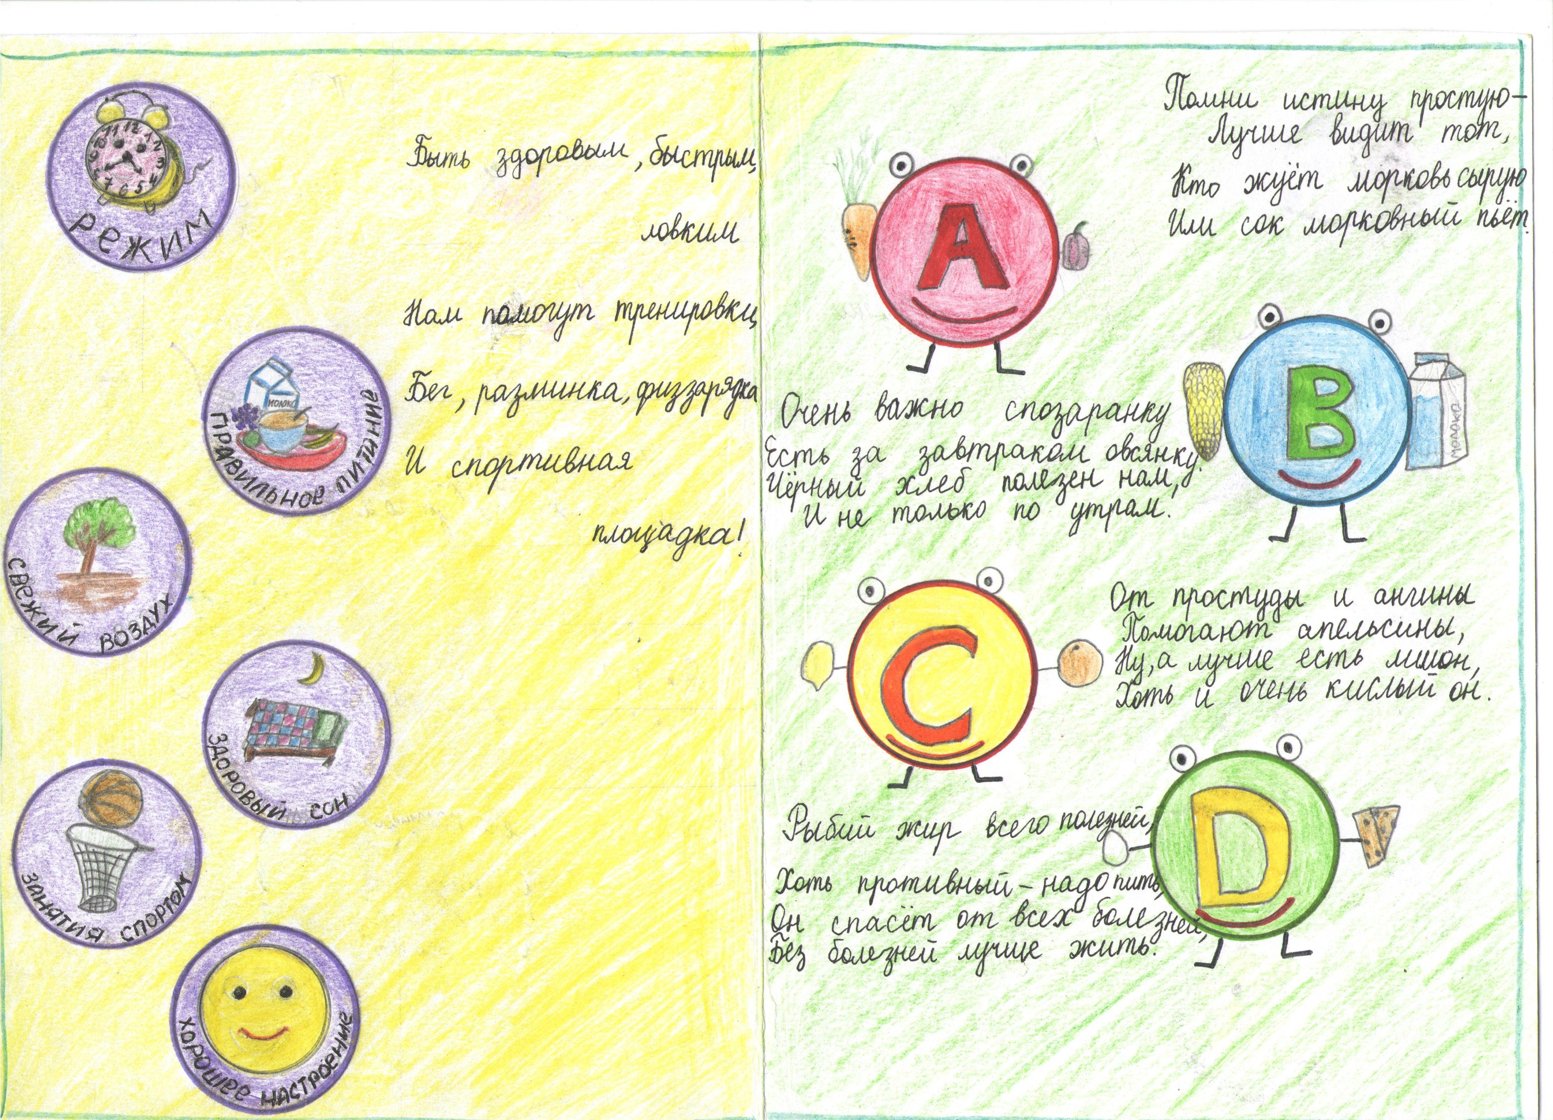 РЕЖИМ
МОЛОКО
ПРАВИЛЬНОЕ ПИТАНИЕ
СВЕЖИЙ ВОЗДУХ
ЗДОРОВЫЙ СОН
ЗАНЯТИЯ СПОРТОМ
ХОРОШЕЕ НАСТРОЕНИЕ
Быть здоровым, быстрым,
ловким
Нам помогут тренировки,
Бег, разминка, физзарядка
И спортивная
площадка!
Помни истину простую-
Лучше видит тот,
Кто жуёт морковь сырую
Или сок морковный пьёт.
A
Очень важно спозаранку
Есть за завтраком овсянку.
Чёрный хлеб полезен нам,
И не только по утрам.
B
МОЛОКО
C
От простуды и ангины
Помогают апельсины,
Ну, а лучше есть лимон,
Хоть и очень кислый он.
Рыбий жир всего полезней,
Хоть противный - надо пить,
Он спасёт от всех болезней,
Без болезней лучше жить.
D